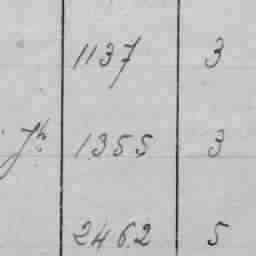 1137 3
Jr. 1355 3
2462 5